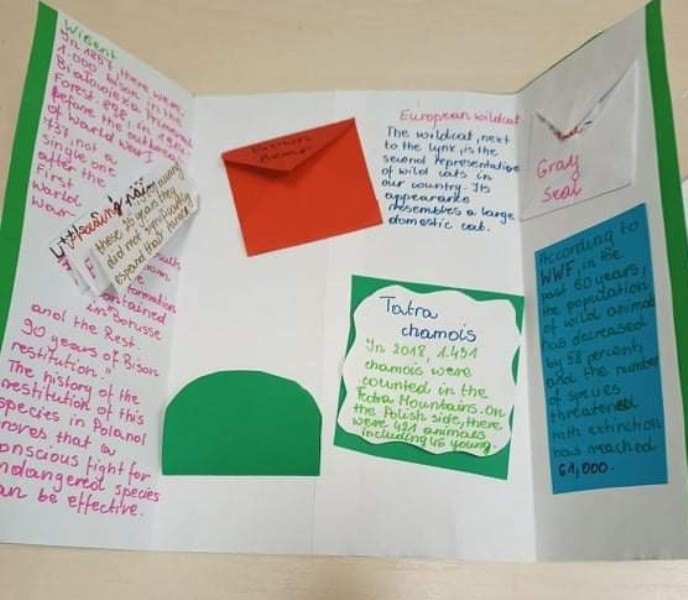 Wisent
In 1857, there were
1.000 bison in the
Primeval
Forest 898; in 1914
before the outbreak
of World War I
737, not a
single one
after the
First
World
War
these years they
did not significantly
expand their
contained
in "Borusse
and the Rest.
90 years of Bison
restitution."
The history of the
restitution of this
species in Poland
proves that a
conscious fight for
endangered species
can be effective.
European wildcat
The wildcat, next
to the lynx, is the
second representative
of wild cats in
our country. Its
appearance
resembles a large
domestic cat.
Tatra
chamois
In 2018, 1.431
chamois were
counted in the
Tatra Mountains. On
the Polish side, there
were 421 animals
including 46 young.
Gray
Seal
According to
WWF, in the
past 60 years,
the population
of wild animal
has decreased
by 58 percent
and the number
of species
threatened
with extinction
has reached
61,000.